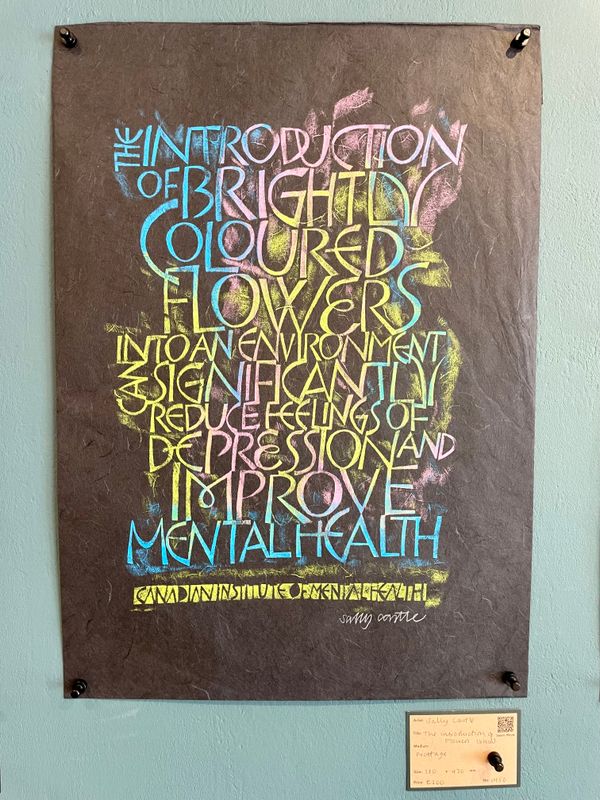 THE INTRODUCTION
OF BRIGHTLY
COLOURED
FLOWERS
INTO AN ENVIRONMENT
CAN SIGNIFICANTLY
REDUCE FEELINGS OF
DEPRESSION AND
IMPROVE
MENTAL HEALTH
CANADIAN INSTITUTE OF MENTAL HEALTH
sally castle
Artist: Sally Castle
Title: The introduction of
Medium:
Frottage
Size:
Price: £200